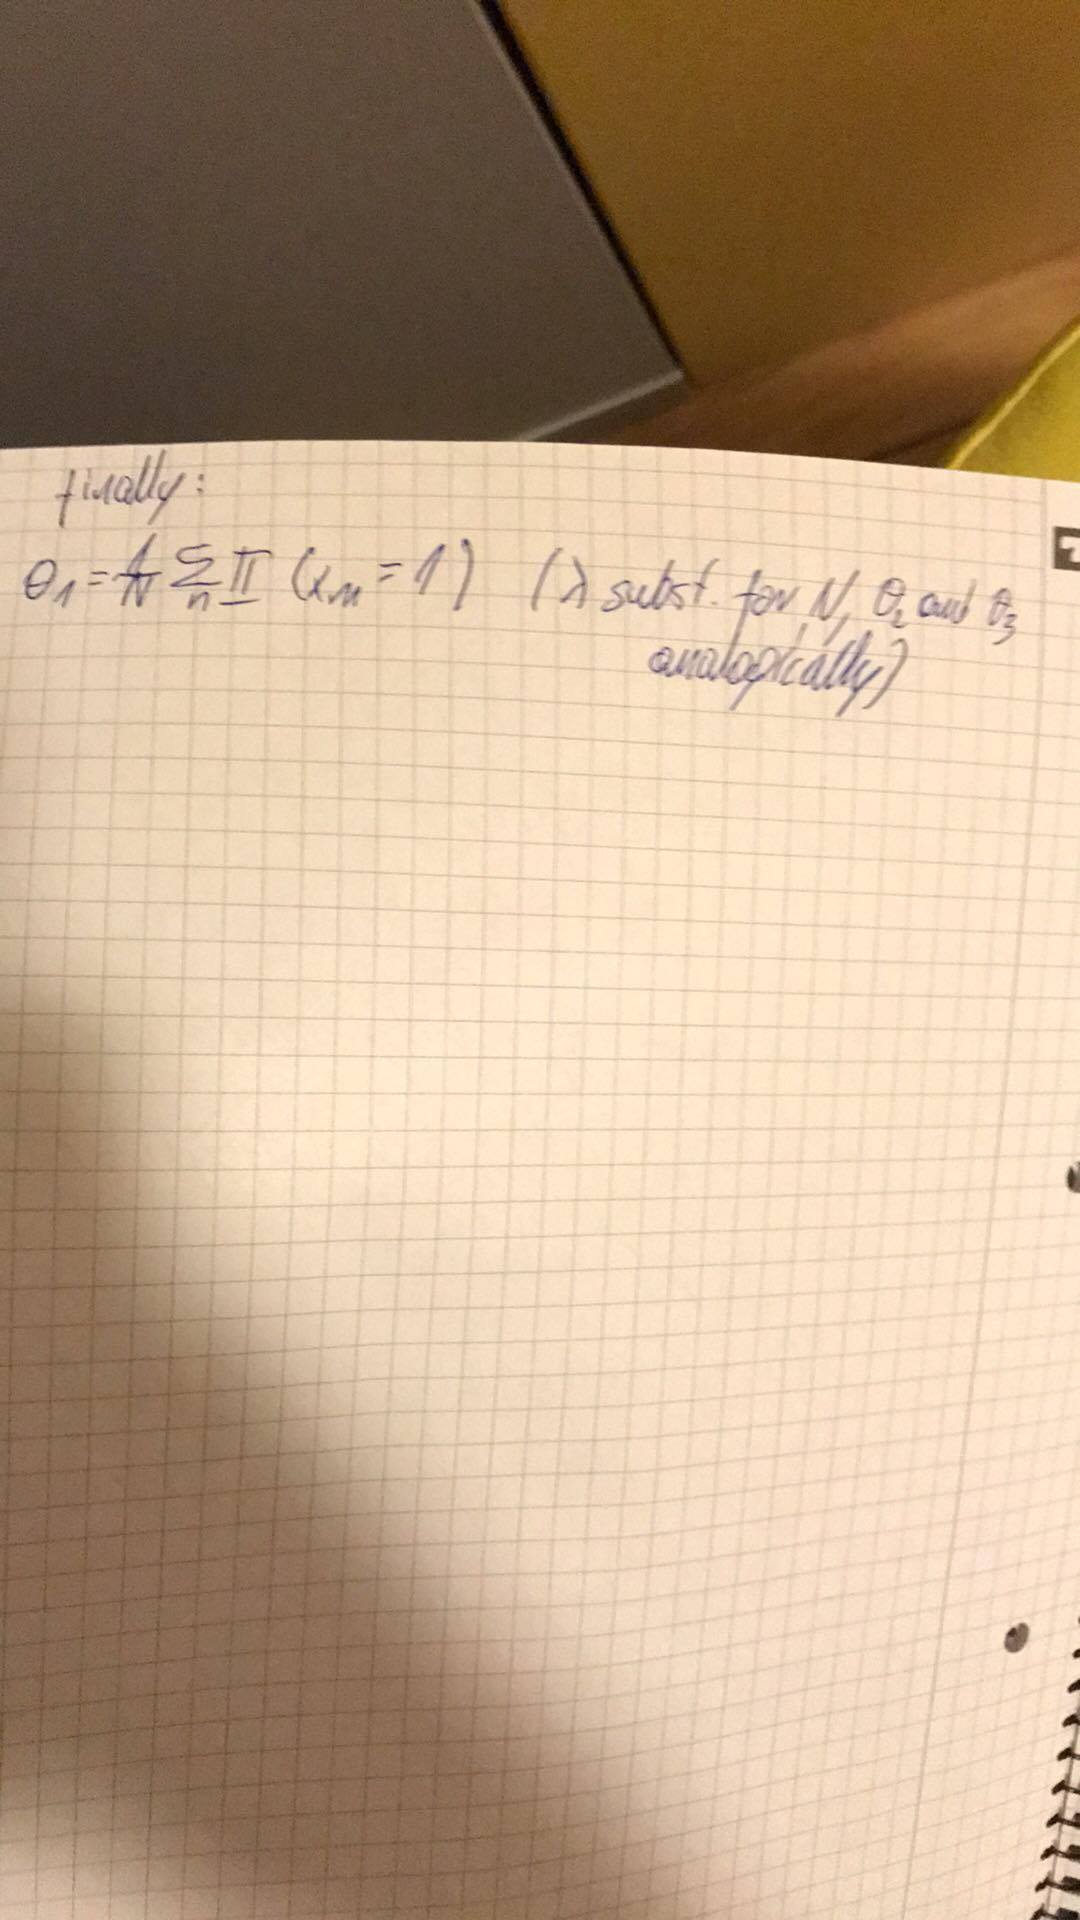 finally:
θ₁ = 1/N Σₙ 𝕀 (xₙ = 1) (λ subst. for N, θ₂ and θ₃
analogically)